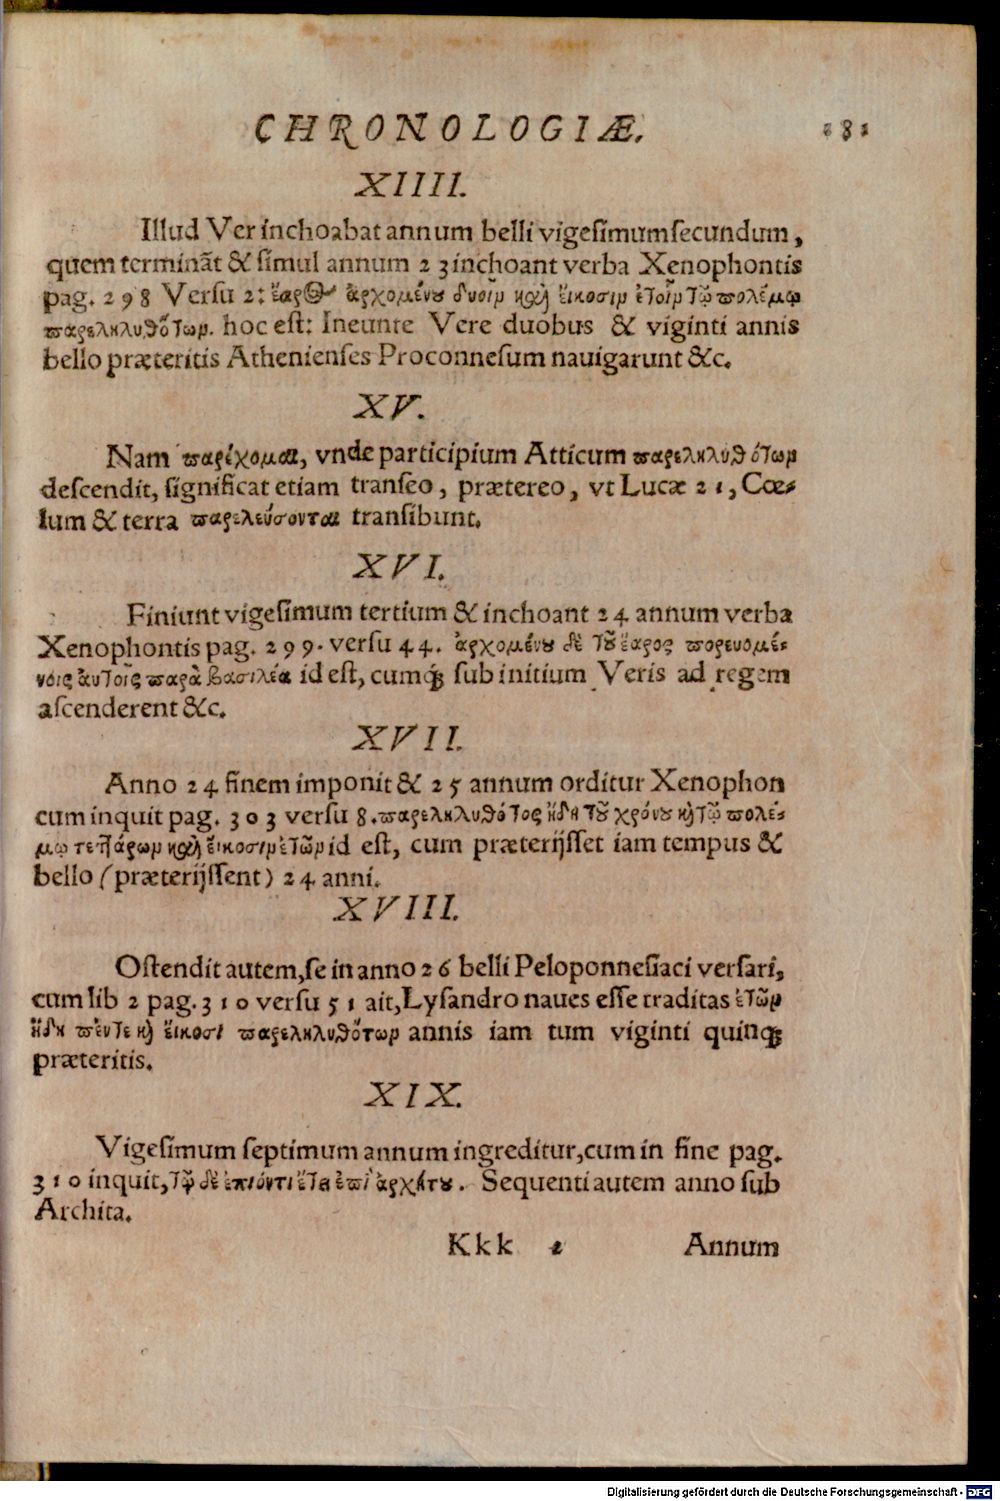 CHRONOLOGIÆ. 181
XIIII.
Illud Ver inchoabat annum belli vigesimumsecundum,
quem terminãt & simul annum 23 inchoant verba Xenophontis
pag. 298 Versu 2: ἔαρος ἀρχομένου δυοῖν καὶ ἔικοσιν ἐτοῖν τῷ πολέμῳ
παρεληλυθότων. hoc est: Ineunte Vere duobus & viginti annis
bello præteritis Athenienses Proconnesum nauigarunt &c.
XV.
Nam παρέχομαι, vnde participium Atticum παρεληλυθότων
descendit, significat etiam transeo, prætereo, vt Lucæ 21, Cœ-
lum & terra παρελεύσονται transibunt.
XVI.
Finiunt vigesimum tertium & inchoant 24 annum verba
Xenophontis pag. 299. versu 44. ἀρχομένου δὲ τοῦ ἔαρος πορευομέ-
νοις ἀυτοῖς παρὰ βασιλέα id est, cumq; sub initium Veris ad regem
ascenderent &c.
XVII.
Anno 24 finem imponit & 25 annum orditur Xenophon
cum inquit pag. 303 versu 8. παρεληλυθότος ἤδη τοῦ χρόνου κὶ τῷ πολέ-
μῳ τεττάρων καὶ ἔικοσιν ἐτῶν id est, cum præterijsset iam tempus &
bello (præterijssent) 24 anni.
XVIII.
Ostendit autem, se in anno 26 belli Peloponnesiaci versari,
cum lib 2 pag. 310 versu 51 ait, Lysandro naues esse traditas ἐτῶν
ἤδη πέντε κὶ ἔικοσι παρεληλυθότων annis iam tum viginti quinq;
præteritis.
XIX.
Vigesimum septimum annum ingreditur, cum in fine pag.
310 inquit, τῷ δὲ ἐπιόντι ἔτει ἐπὶ ἀρχίτου. Sequenti autem anno sub
Archita.
Kkk 2 Annum
Digitalisierung gefördert durch die Deutsche Forschungsgemeinschaft - DFG